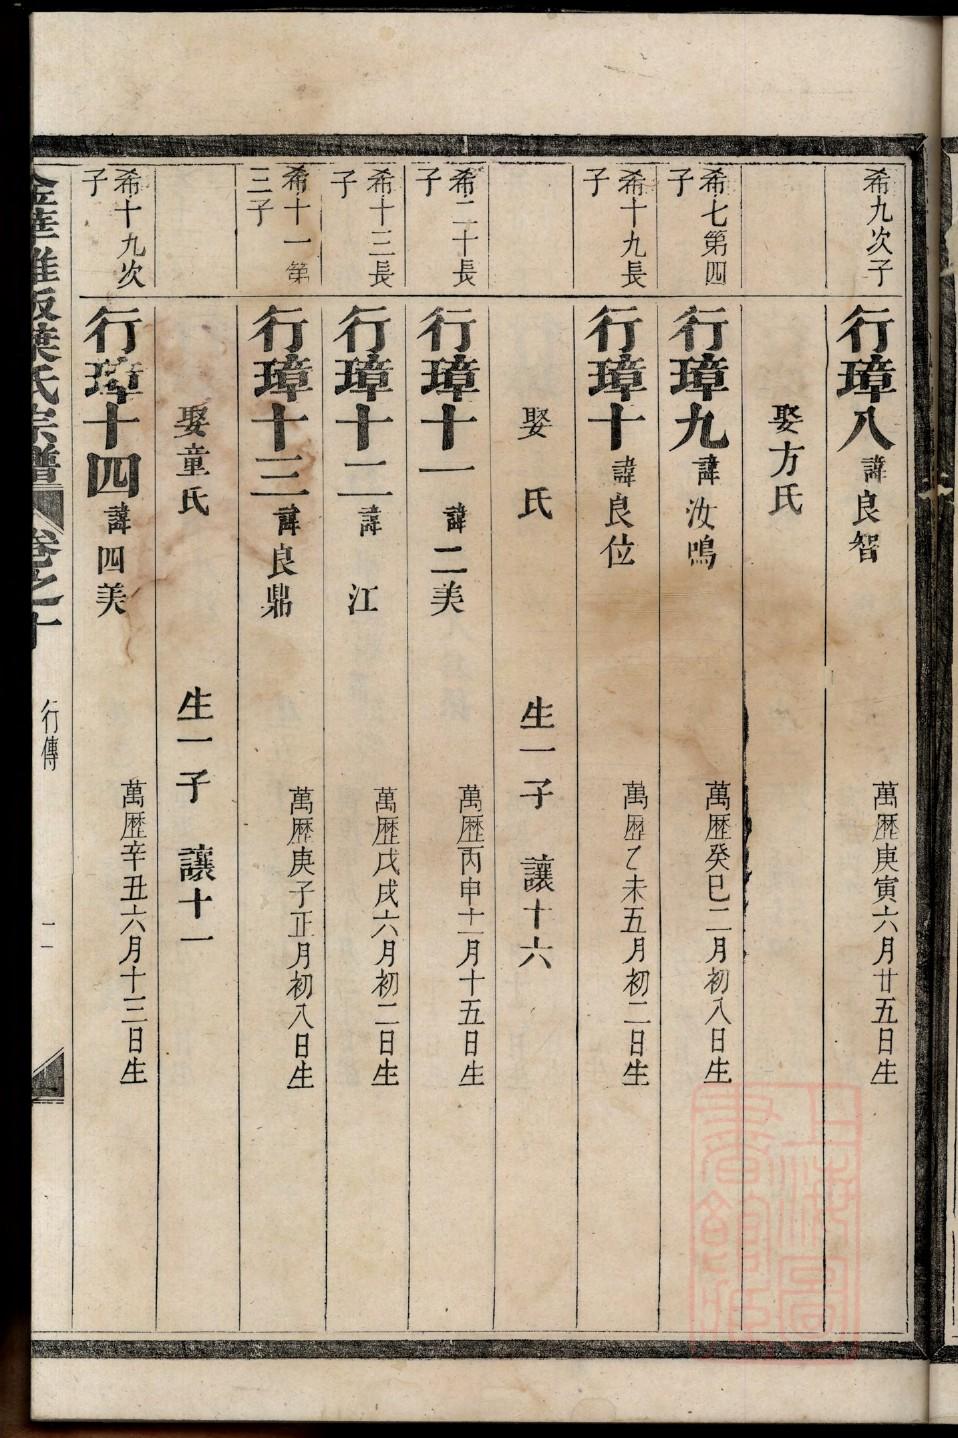 希九次子
行璋八 諱良智 萬歷庚寅六月廿五日生
娶方氏
希七第四子
行璋九 諱汝鳴 萬歷癸巳二月初八日生
希十九長子
行璋十 諱良位 萬歷乙未五月初二日生
娶 氏 生一子 讓十六
希二十長子
行璋十一 諱二美 萬歷丙申十一月十五日生
希十三長子
行璋十二 諱 江 萬歷戊戌六月初二日生
希十一第三子
行璋十三 諱良鼎 萬歷庚子正月初八日生
娶童氏 生一子 讓十一
希十九次子
行璋十四 諱四美 萬歷辛丑六月十三日生
葉氏宗譜 卷之十 行傳
上海圖書館藏